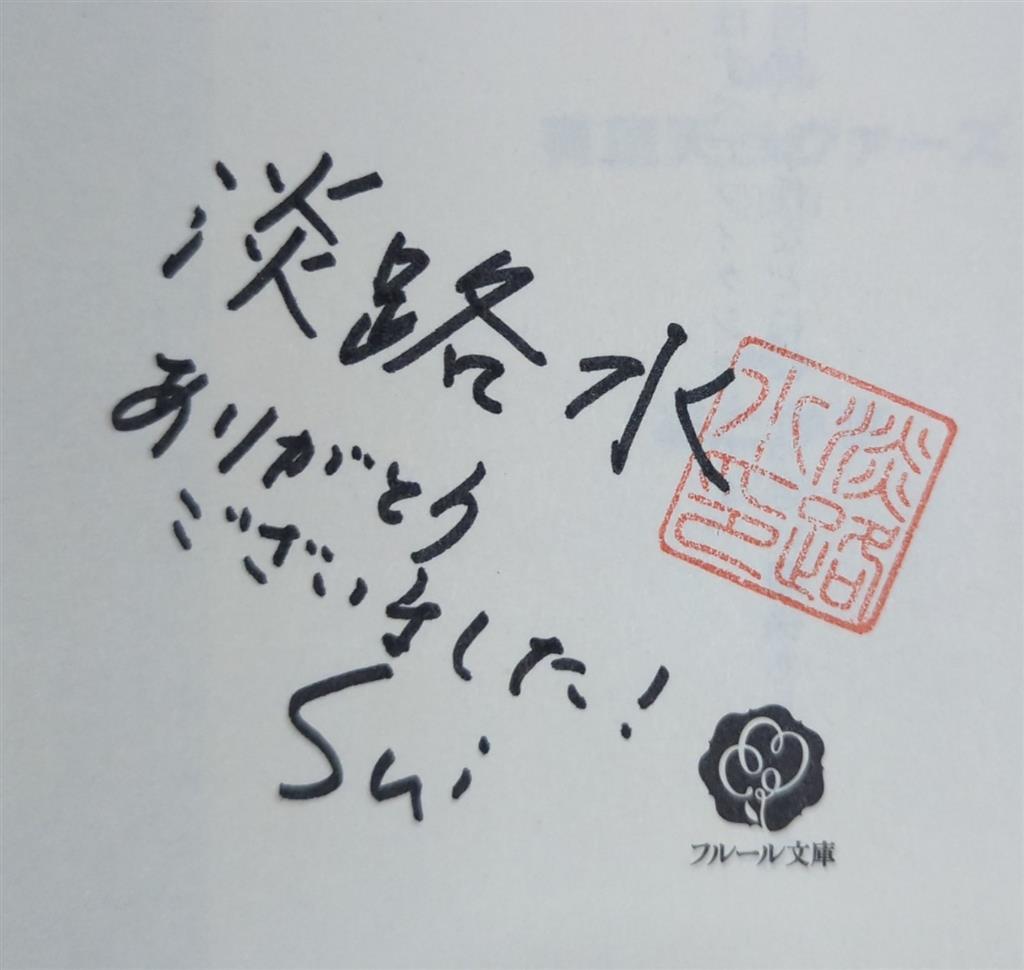 淡路水
ありがとう
ございました!
Sui
淡路
水印
フルール文庫